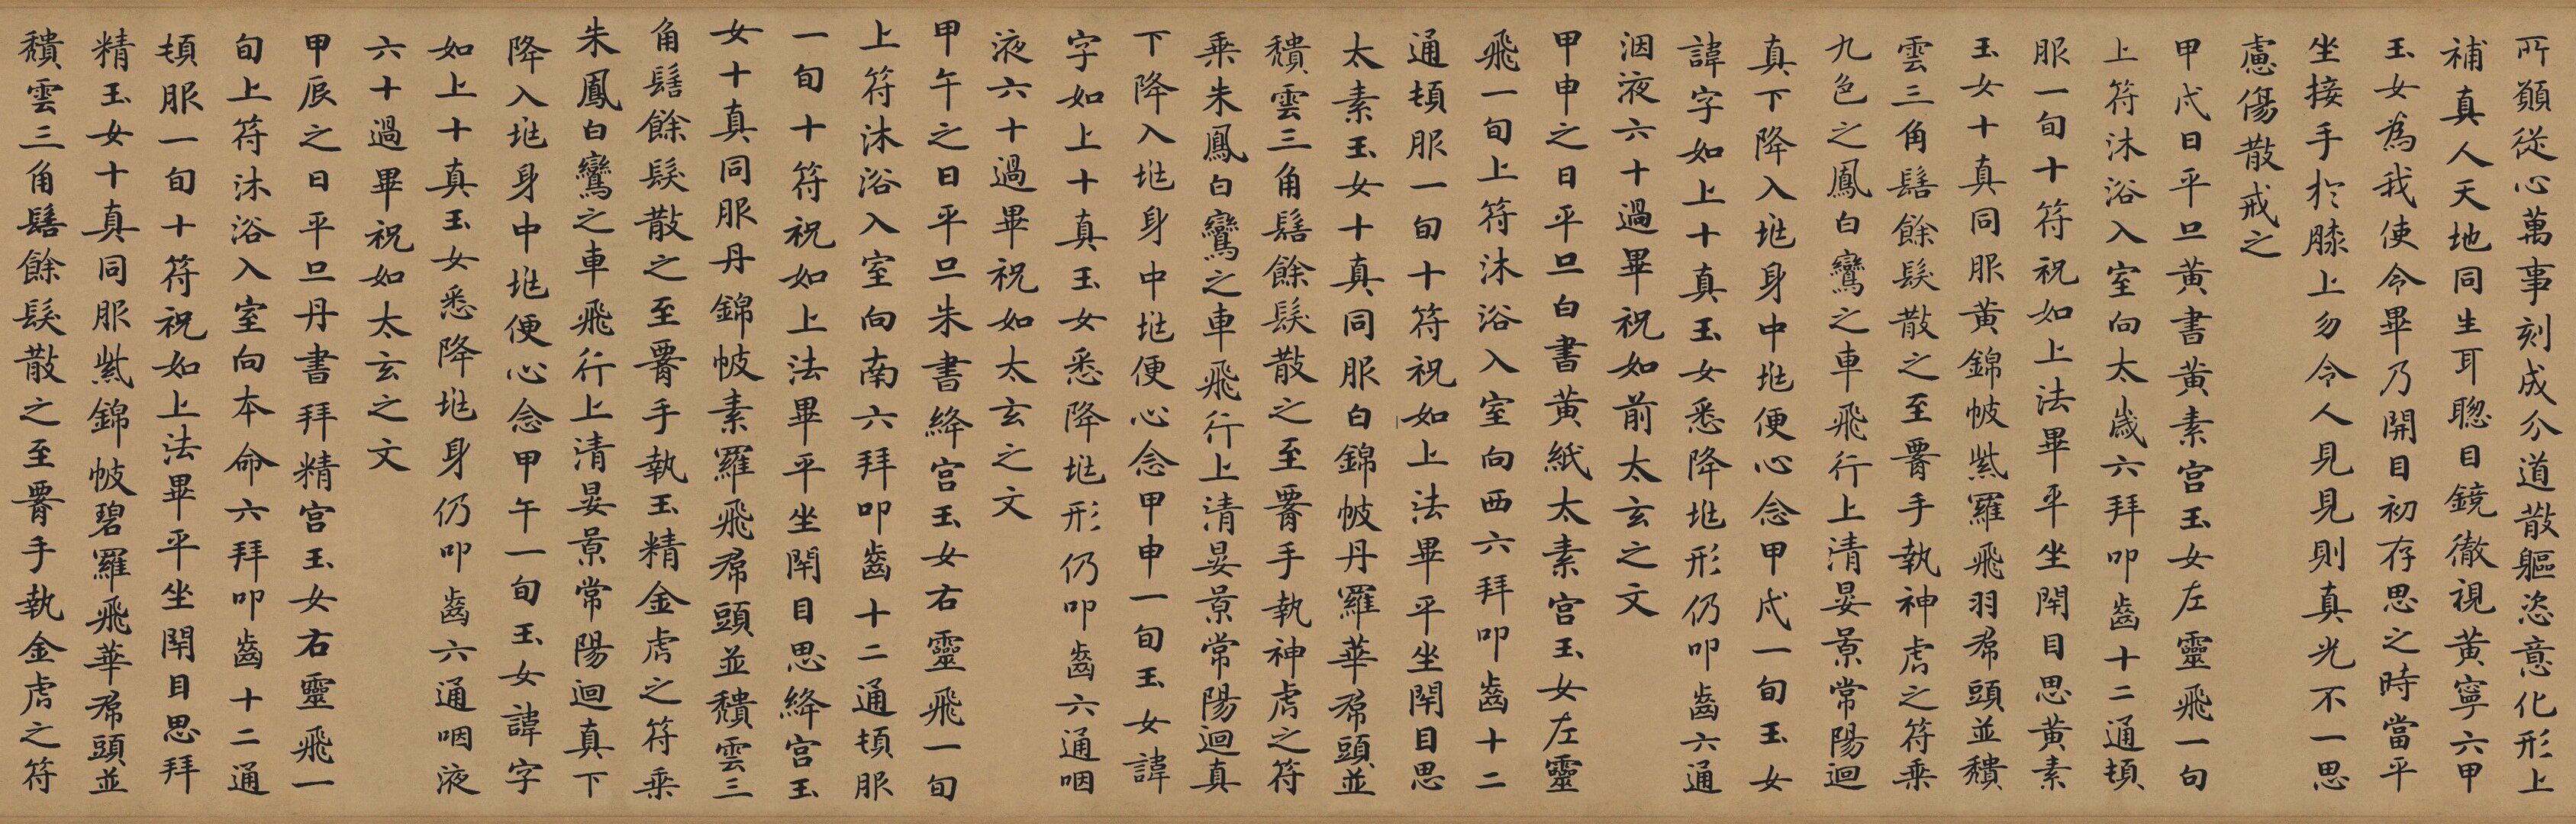 所願從心萬事刻成分道散軀恣意化形上
補真人天地同生耳聰目鏡徹視黃寧六甲
玉女為我使令畢乃開目初存思之時當平
坐接手於膝上勿令人見見則真光不一思
慮傷散戒之
甲戌日平旦黃書黃素宮玉女左靈飛一旬
上符沐浴入室向太歲六拜叩齒十二通頓
服一旬十符祝如上法畢平坐閉目思黃素
玉女十真同服黃錦帔紫羅飛羽帬頭並頹
雲三角髻餘髮散之至腰手執神虎之符乘
九色之鳳白鸞之車飛行上清晏景常陽迴
真下降入兆身中兆便心念甲戌一旬玉女
諱字如上十真玉女悉降兆形仍叩齒六通
洇液六十過畢祝如前太玄之文
甲申之日平旦白書黃紙太素宮玉女左靈
飛一旬上符沐浴入室向西六拜叩齒十二
通頓服一旬十符祝如上法畢平坐閉目思
太素玉女十真同服白錦帔丹羅華帬頭並
頹雲三角髻餘髮散之至腰手執神虎之符
乘朱鳳白鸞之車飛行上清晏景常陽迴真
下降入兆身中兆便心念甲申一旬玉女諱
字如上十真玉女悉降兆形仍叩齒六通咽
液六十過畢祝如太玄之文
甲午之日平旦朱書絳宮玉女右靈飛一旬
上符沐浴入室向南六拜叩齒十二通頓服
一旬十符祝如上法畢平坐閉目思絳宮玉
女十真同服丹錦帔素羅飛帬頭並頹雲三
角髻餘髮散之至腰手執玉精金虎之符乘
朱鳳白鸞之車飛行上清晏景常陽迴真下
降入兆身中兆便心念甲午一旬玉女諱字
如上十真玉女悉降兆身仍叩齒六通咽液
六十過畢祝如太玄之文
甲辰之日平旦丹書拜精宮玉女右靈飛一
旬上符沐浴入室向本命六拜叩齒十二通
頓服一旬十符祝如上法畢平坐閉目思拜
精玉女十真同服紫錦帔碧羅飛華帬頭並
頹雲三角髻餘髮散之至腰手執金虎之符